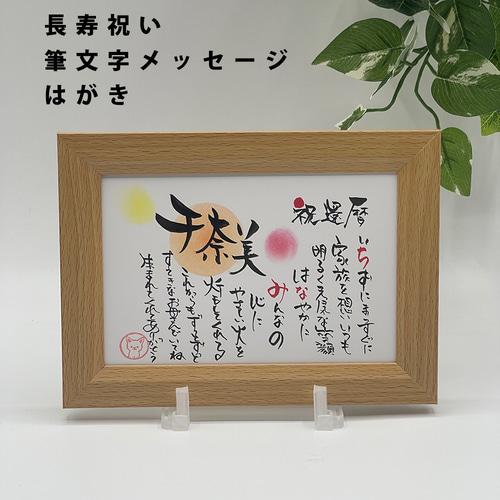 長寿祝い
筆文字メッセージ
はがき
祝還暦
千奈美
いちずにまっすぐに
家族を想いいつも
明るく元気な笑顔
はなやかに
みんなの
心に
やさしい火を
灯してくれる
これからもずっとずっと
すてきなお母さんでいてね
生まれてくれてありがとう